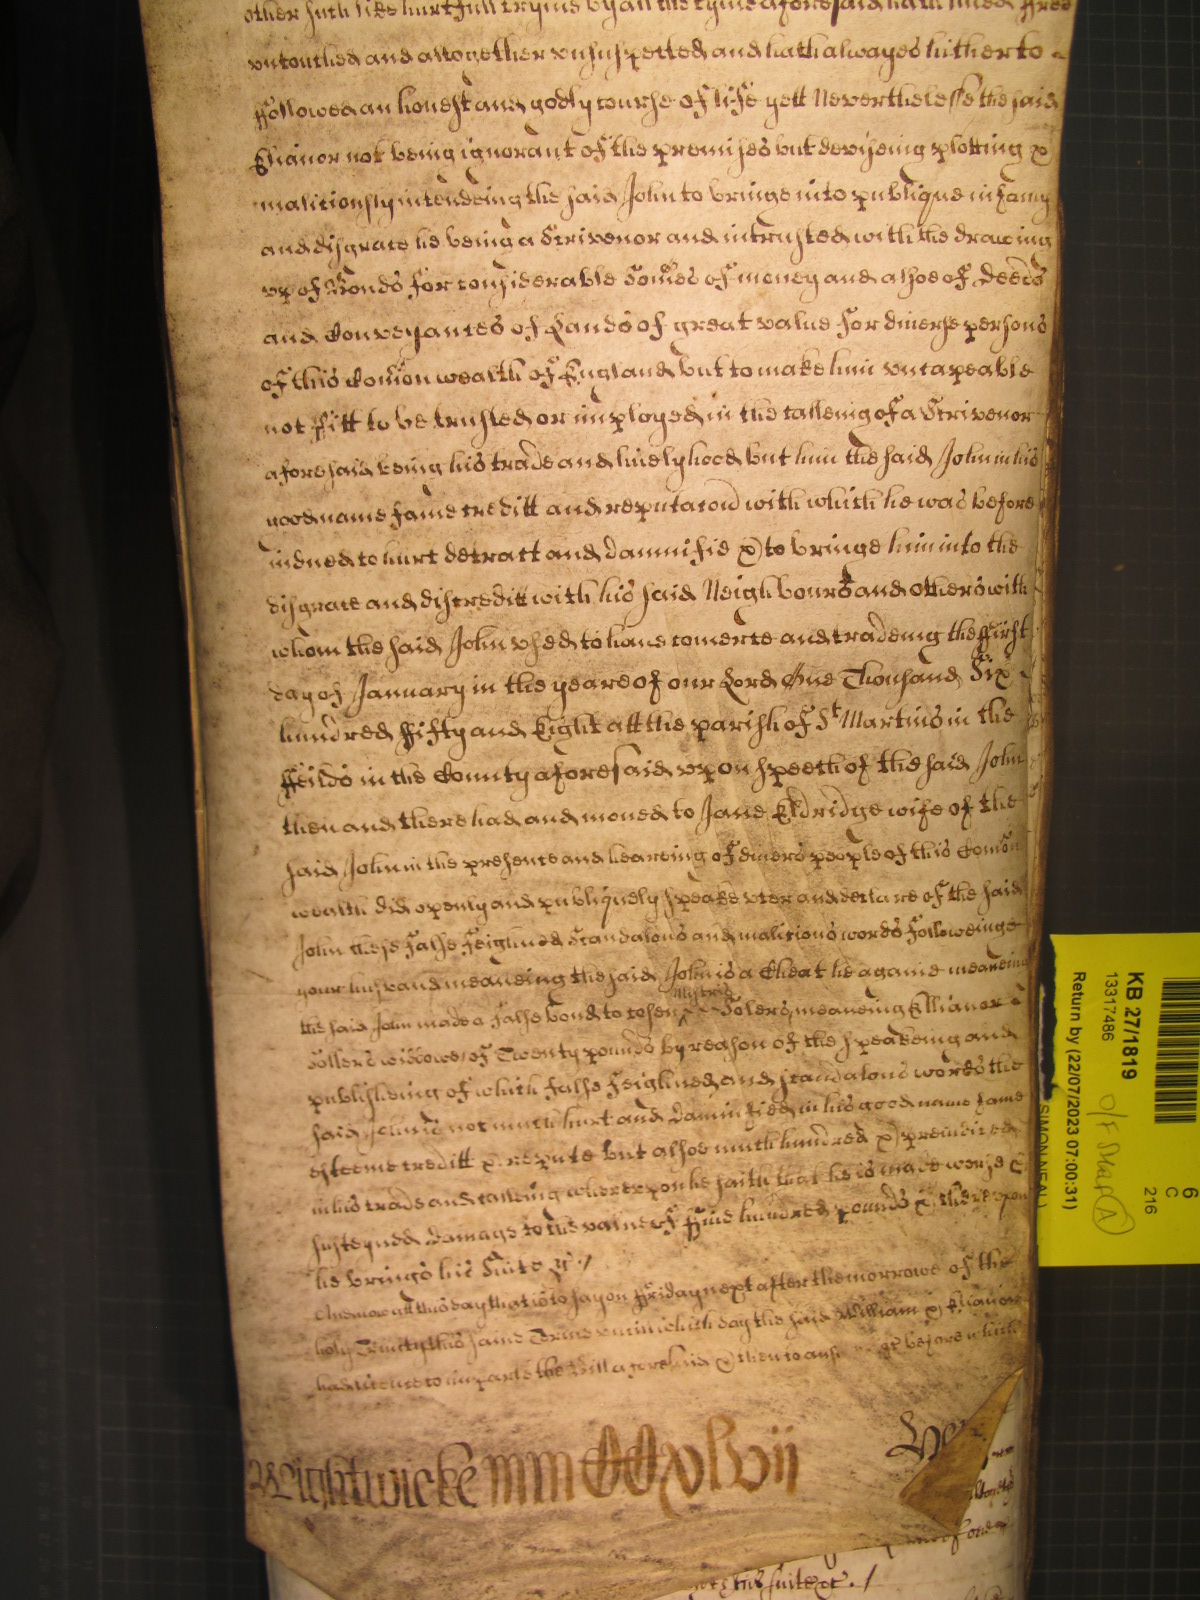 other such like hurtfull crymes by all the tyme aforesaid hath lived free
untouched and altogether unsuspected and hath alwayes hitherto
ffollowed an honest and godly course of life yett Neverthelesse the said
Elianor not being ignorant of the premises but deviseing plotting &
malitiously intendeing the said John to bringe into publique infamy
and disgrace he being a Scrivenor and intrusted with the draweing
up of Bonds for considerable Somes of money and alsoe of Deeds
and Conveyances of Lands of great value for diverse persons
of this Comon wealth of England but to make him uncapeable
not fitt to be trusted or imployed in the calleing of a Scrivenor
aforesaid being his trade and livelyhood but him the said John in his
good name fame creditt and reputacon with which he was before
indued to hurt detract and damnifie & to bringe him into the
disgrace and discreditt with his said Neighbours and others with
whom the said John used to have comerce and tradeing the ffirst
day of January in the yeare of our Lord One Thousand Six
hundred ffifty and Eight att the parish of St Martins in the
ffeilds in the County aforesaid upon speech of the said John
then and there had and moved to Jane Eldridge wife of the
said John in the presence and heareing of divers people of this Comon
wealth did openly and publiquely speake utter and declare of the said
John these false feighned Scandalous and malitious words followeinge
your husband meaneing the said John is a Cheat he againe meaneing
the said John made a false bond to cosen Mistris Solers meaneing Ellianor
Sollers widdowe of Twenty pounds by reason of the speakeing and
publisheing of which false feighned and scandalous words the
said John is not much hurt and damnified in his good name fame
esteeme creditt & repute but alsoe much hindred & preiudiced
in his trade and calleing whereupon he saith that he is made worse &
susteyned damage to the value of ffive hundred pounds & thereupon
he brings his Suite &c /
And now att this day that is to say on ffriday next after the morrowe of the
holy Trinity this same Terme untill which day the said William & Elianor
had licence to imparle the Bill aforesaid & then to answere &c before which
Weightwicke mmCCxlvii
his suite &c. /
KB 27/1819
13317486
Return by (22/07/2023 07:00:31)
SIMON NEAL
6
C
216